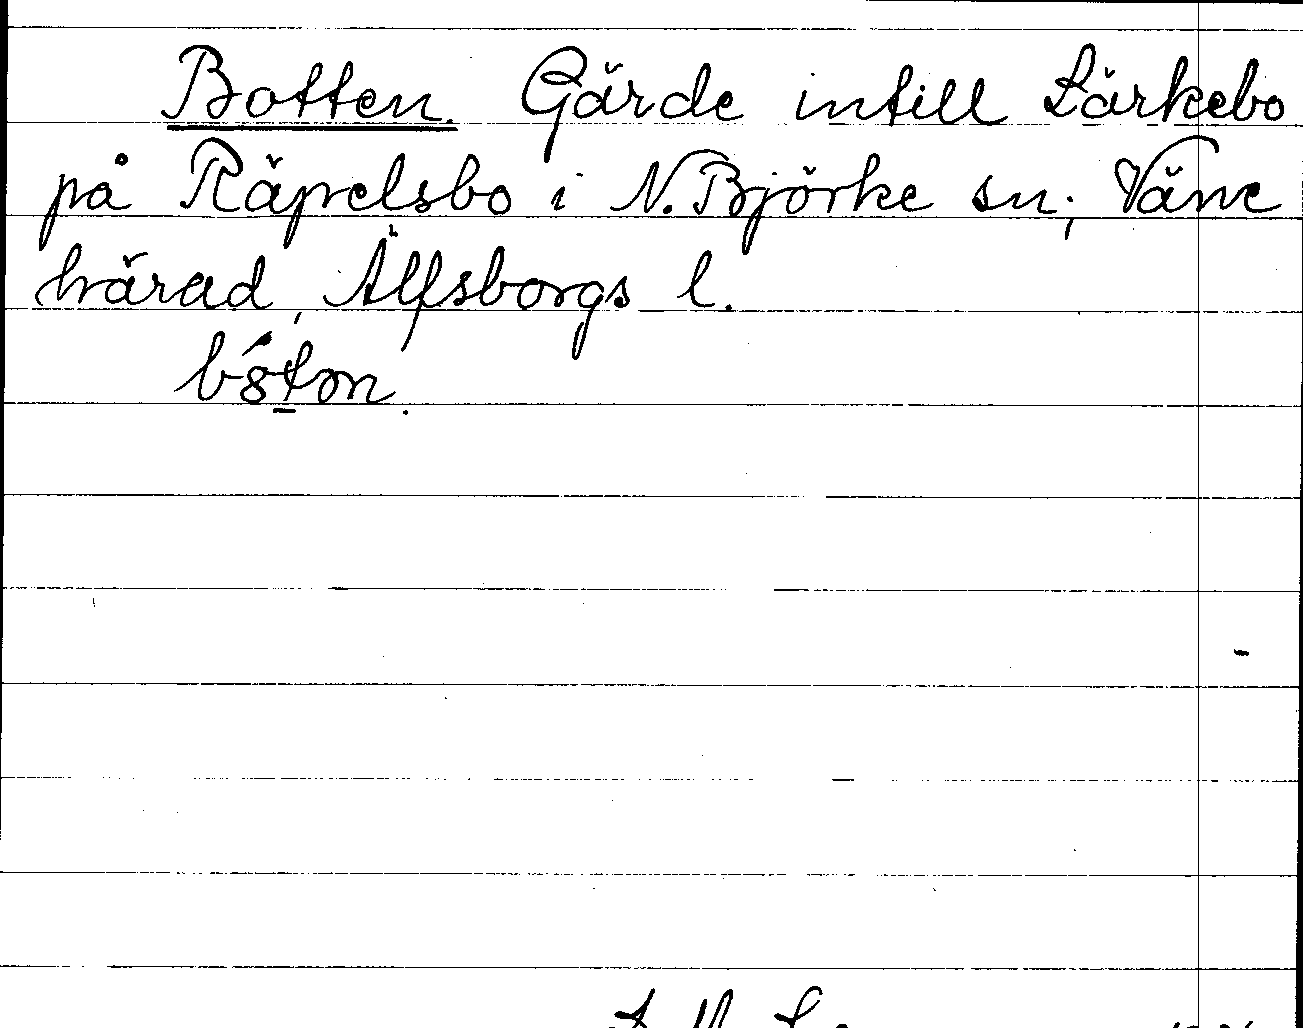 Botten. Gärde intill Lärkebo
på Räpelsbo i N. Björke sn; Väne
härad, Älfsborgs l.